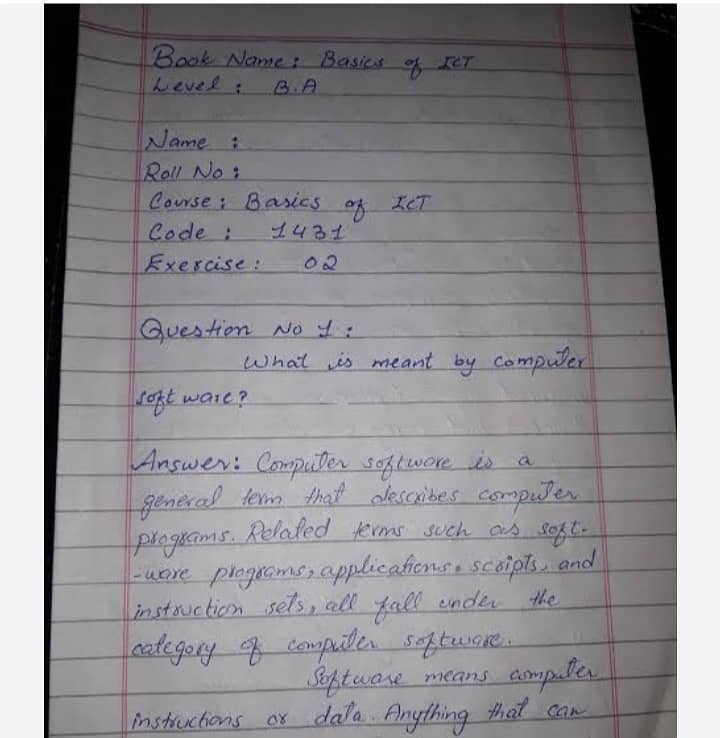 Book Name : Basics of ICT
Level : B.A
Name :
Roll No :
Course : Basics of ICT
Code : 1431
Exercise : 02
Question No 1 :
What is meant by computer
soft ware?
Answer: Computer software is a
general term that describes computer
programs. Related terms such as soft-
-ware programs, applications, scripts, and
instruction sets, all fall under the
category of computer software.
Software means computer
instructions or data. Anything that can